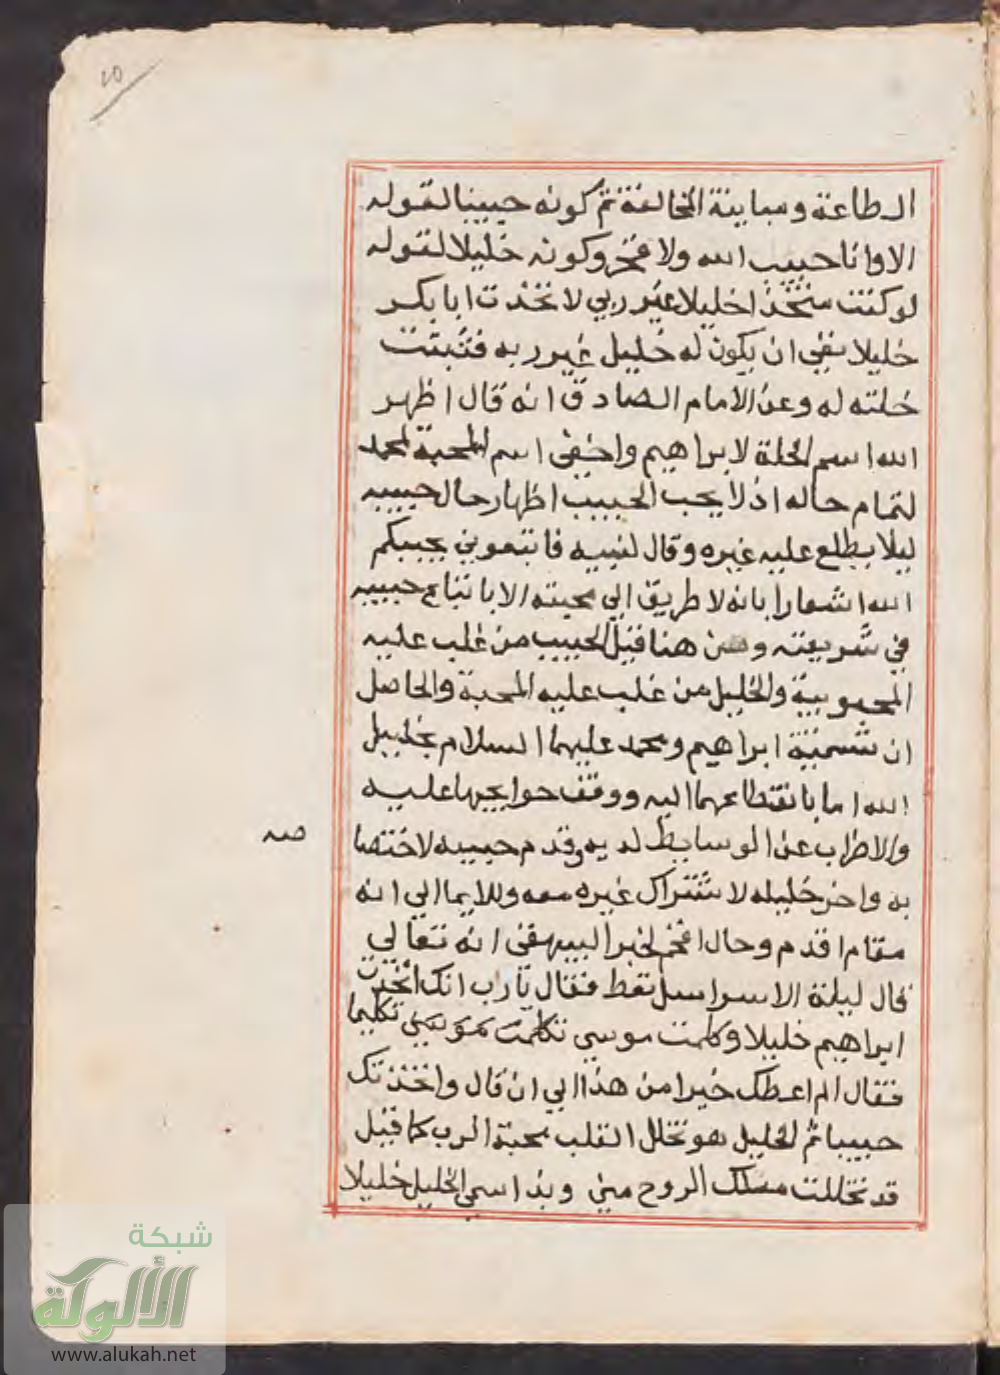 ٢٥
الطاعة ومباينة المخالفة ثم كونه حبيبا لقوله
الا وانا حبيب الله ولا فخر وكونه خليلا لقوله
لو كنت متخذا خليلا غير ربي لاتخذت ابا بكر
خليلا نفي ان يكون له خليل غير ربه فثبتت
خلته له وعن الامام الصادق انه قال اظهر
الله اسم الخلة لابراهيم واخفى اسم المحبة لمحمد
لتمام حاله اذ لا يحب الحبيب اظهار حال حبيبه
ليلا يطلع عليه غيره وقال لنبيه فاتبعوني يحببكم
الله اشعارا بانه لا طريق الي محبته الا باتباع حبيبه
في شريعته ومن هنا قيل الحبيب من غلب عليه
المحبوبية والخليل من غلب عليه المحبة والحاصل
ان تسمية ابراهيم ومحمد عليهما السلام بخليل
الله اما بانقطاعهما اليه ووقف حوايجها عليه
والاضراب عن الوسايط لديه وقدم حبيبه لاختصا
صه
به واخر خليله لاشتراك غيره معه وللايما الي انه
مقام اقدم وحال افخم لخبر البيهقى انه تعالي
قال ليلة الاسرا سل تعط فقال يا رب انك اتخذت
ابراهيم خليلا وكلمت موسي تكليما
فقال الم اعطك خيرا من هذا الي ان قال واتخذتك
حبيبا ثم الخليل هو تخلل القلب بمحبة الرب كما قيل
قد تخللت مسلك الروح مني وبذا سمي الخليل خليلا
شبكة
الألوكة
www.alukah.net